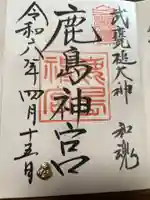 武甕槌大神 和魂
鹿島神宮
令和八年四月十五日